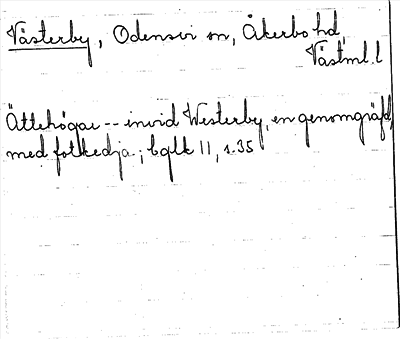 Västerby, Odensvi sn, Åkerbo hd,
Västml. l
Ättehögar -- invid Westerby, en genomgräfd,
med fotkedja; bglk 11, s. 35